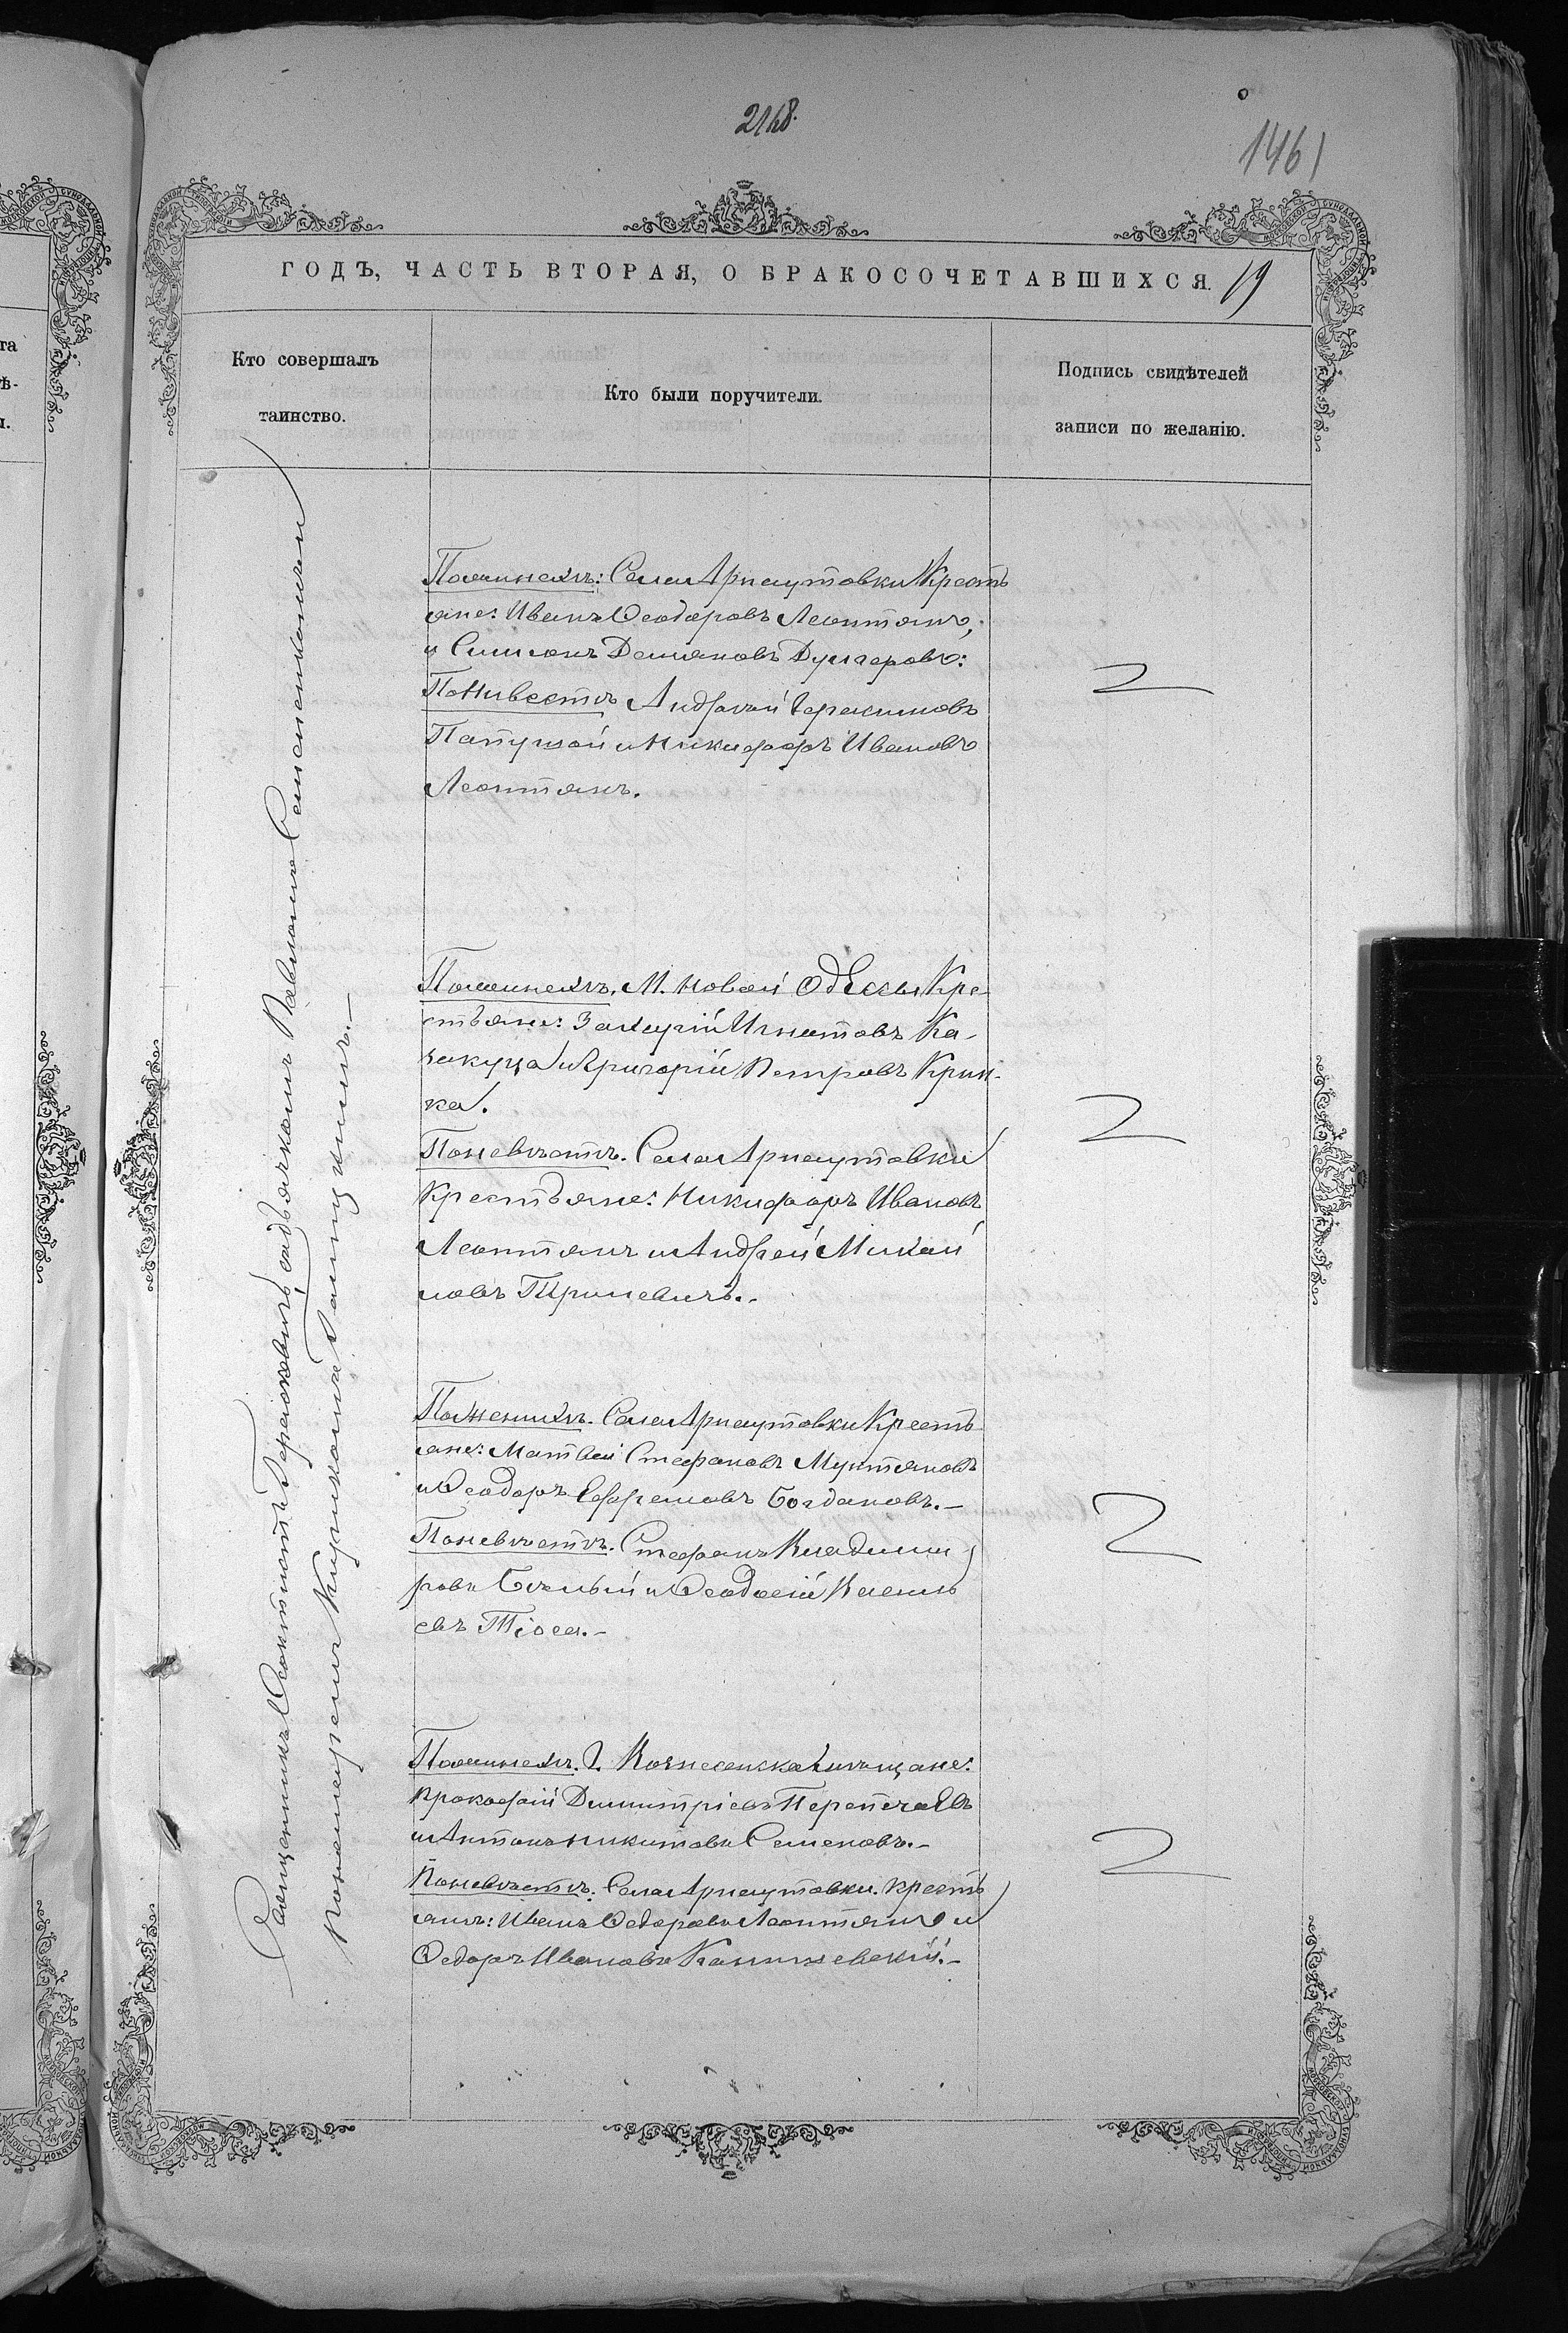 2168.
1461
ГОДЪ, ЧАСТЬ ВТОРАЯ, О БРАКОСОЧЕТАВШИХСЯ. 19
Кто совершалъ
таинство.
Кто были поручители.
Подпись свидѣтелей
записи по желанію.
Священникъ Ѳеоктистъ Герасковичъ съ дьячкомъ Павломъ Самененкомъ и
Пономаремъ
Пожинихъ: Села Арнаутовки Кресть
яне: Иванъ Ѳеодоровъ Леонтянъ,
и Симеонъ Демяновъ Дулгеровъ:
По Нивестѣ Андрей Герасимовъ
Папушой и Никифоръ Ивановъ
Леонтянъ.
Пожинихъ. М. Новой Одессы Кре-
стьяне: Захарій Игнатовъ Ка-
закуца и Григорій Петровъ Крин-
ка.
Поневѣстѣ. Села Арнаутовки
Крестьяне: Никифоръ Ивановъ
Леонтянъ и Андрей Михай
ловъ
Поженихъ. Села Арнаутовки Кресть
яне: Матвей Стефановъ Мунтяновъ
и Ѳеодоръ Ефремовъ Богдановъ.-
Поневѣстѣ. Стефанъ Владими
ровъ Бѣлый и Ѳеодосій Василь
евъ
Пожинихъ. Г. Вознесенска мѣщане:
Прокофій Димитріевъ
и Антонъ Никитовъ Семеновъ.-
Поневѣстѣ: Села Арнаутовки. Кресть
янъ: Иванъ Ѳедоровъ Леонтянъ и
Ѳедоръ Ивановъ